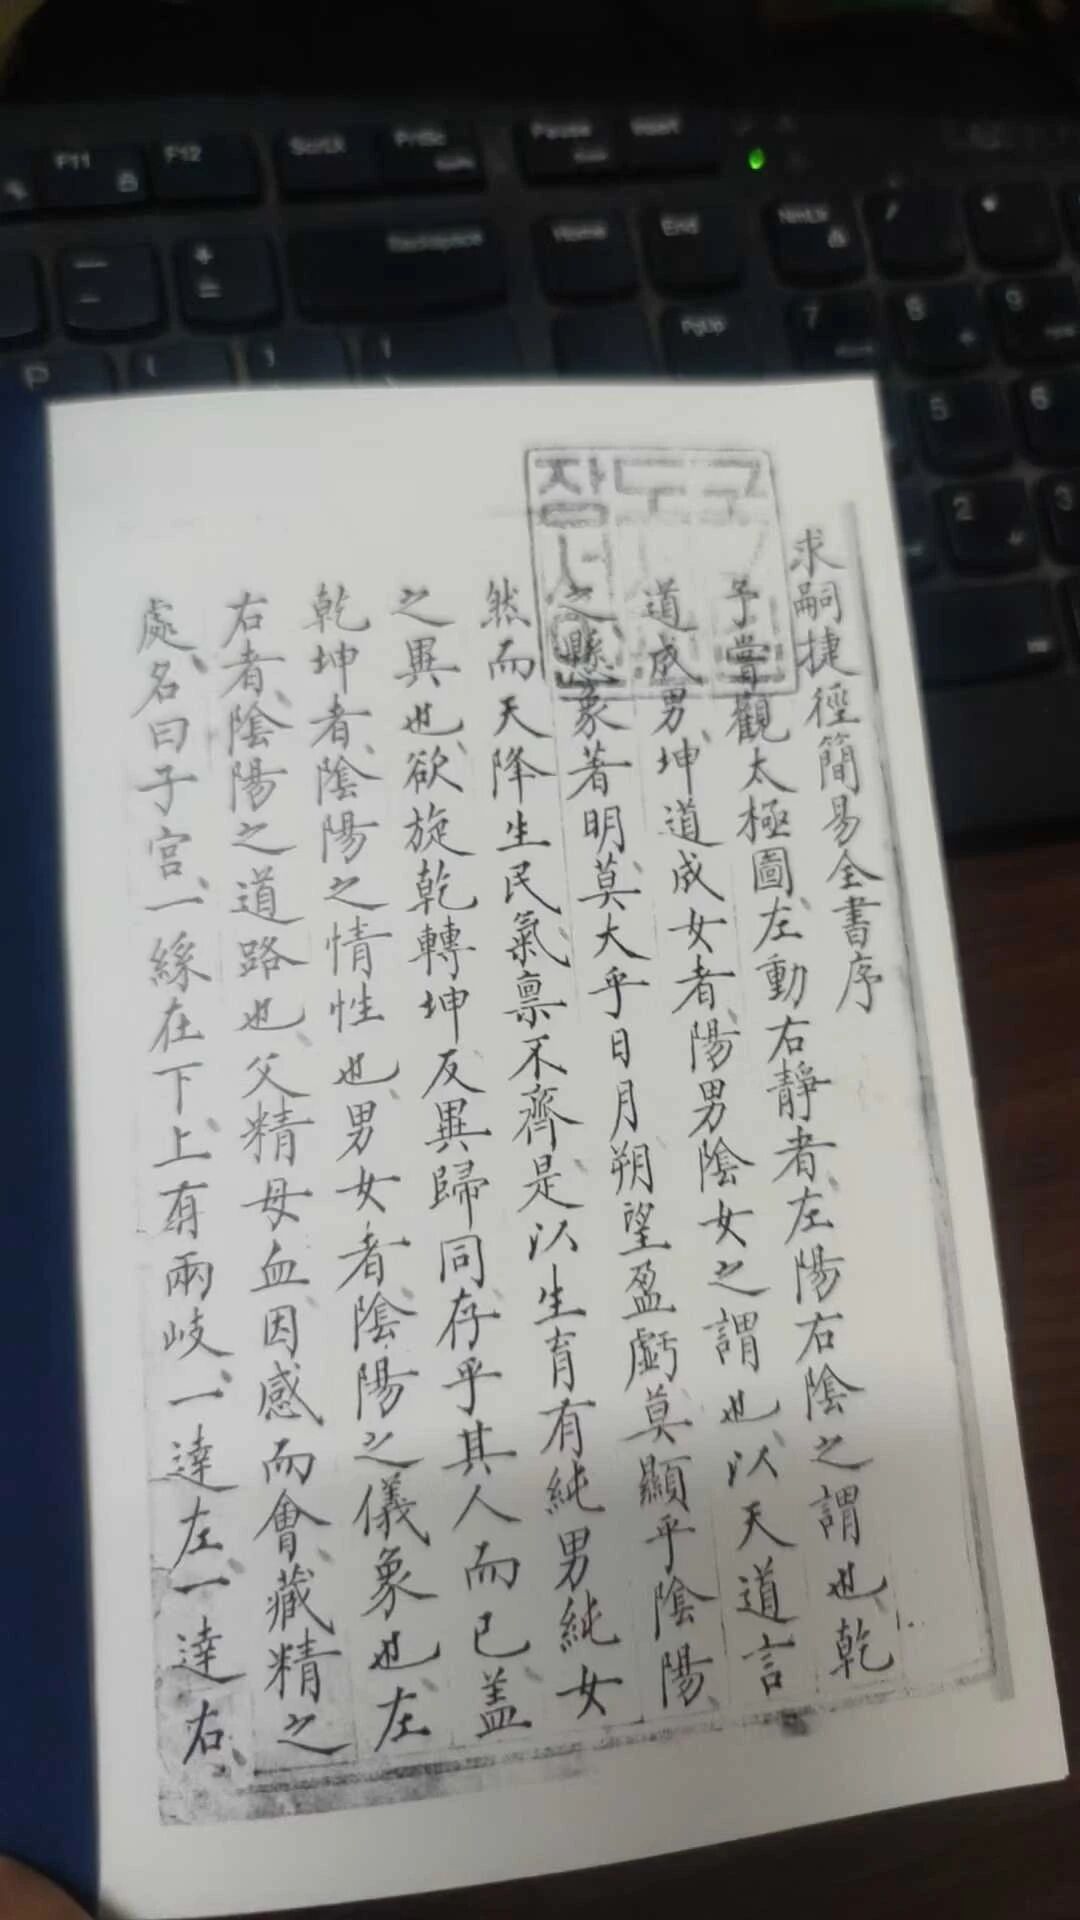 求嗣捷徑簡易全書序
予嘗觀太極圖左動右靜者左陽右陰之謂也乾
道成男坤道成女者陽男陰女之謂也以天道言
之懸象著明莫大乎日月朔望盈虧莫顯乎陰陽
然而天降生民氣禀不齊是以生育有純男純女
之異也欲旋乾轉坤反異歸同存乎其人而已盖
乾坤者陰陽之情性也男女者陰陽之儀象也左
右者陰陽之道路也父精母血因感而會藏精之
處名曰子宮一絲在下上有兩岐一達左一達右
국도장
서
F11
F12
ScrLk
PrtSc
Pause
Insert
Backspace
Home
End
NmLk
/
*
PgUp
7
8
9
P
5
6
2
3